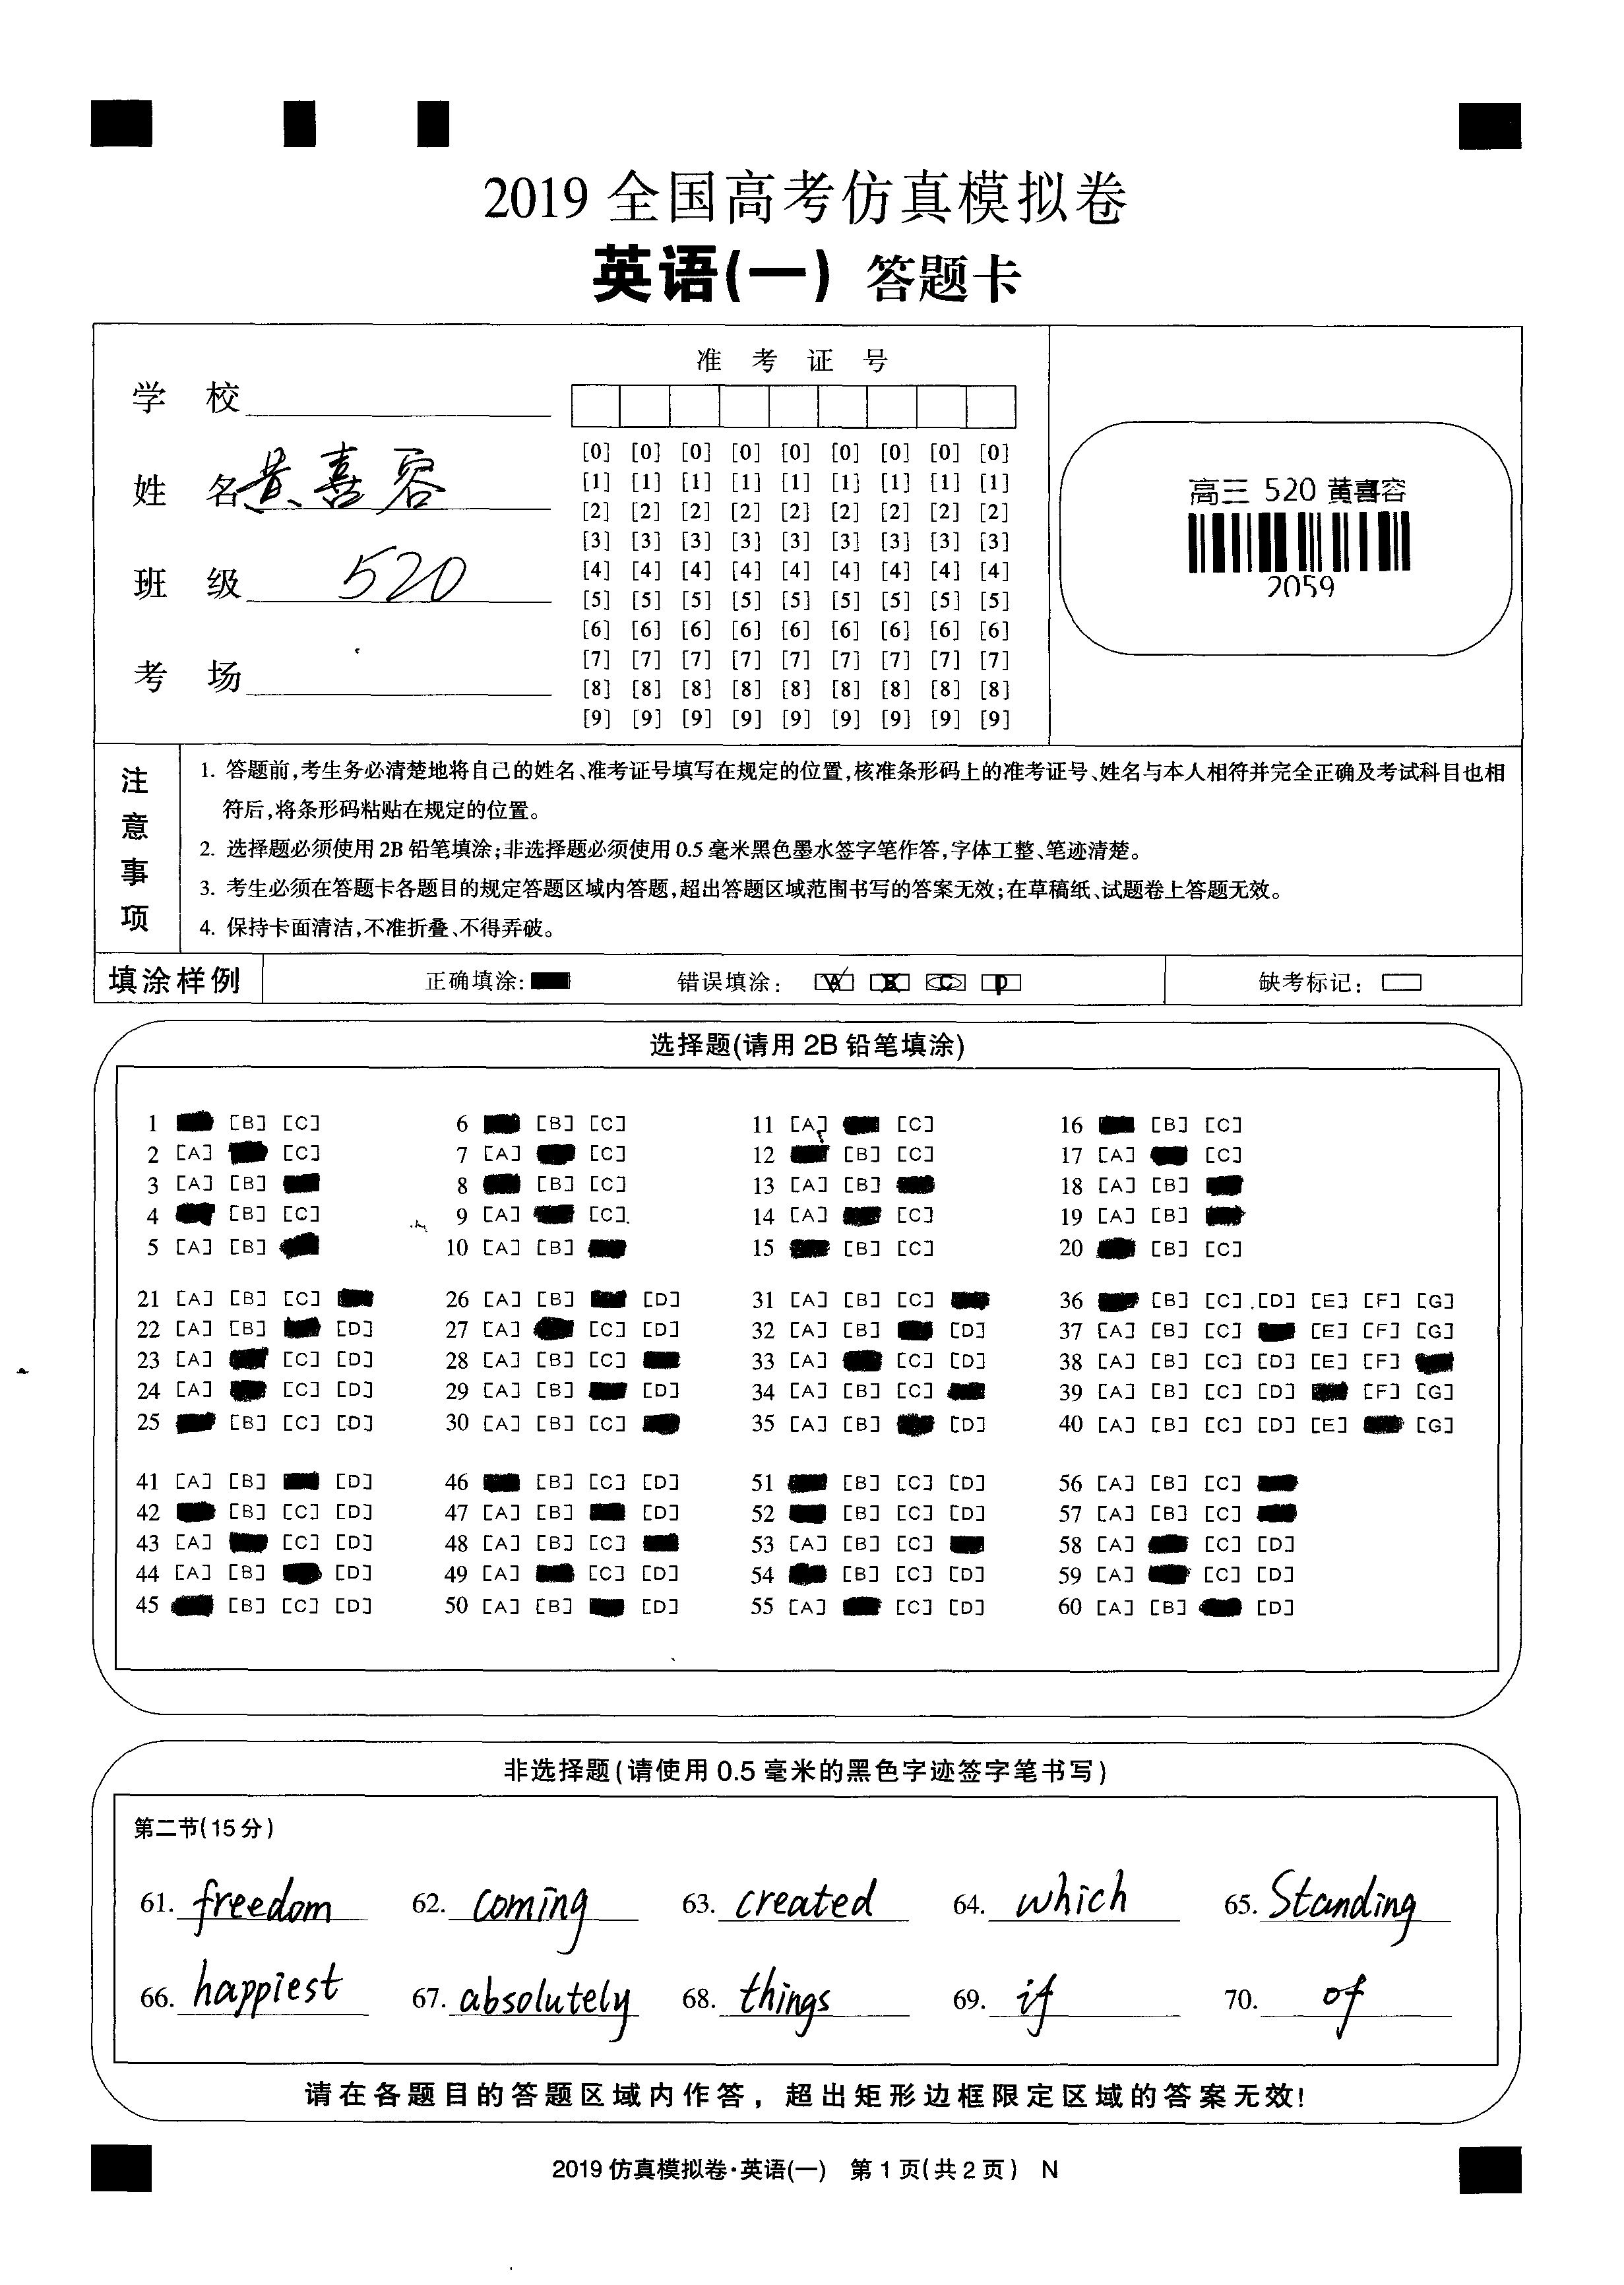 2019 全国高考仿真模拟卷
英语(一) 答题卡
准 考 证 号
学 校
姓 名 黄喜容
班 级 520
考 场
[0] [0] [0] [0] [0] [0] [0] [0] [0]
[1] [1] [1] [1] [1] [1] [1] [1] [1]
[2] [2] [2] [2] [2] [2] [2] [2] [2]
[3] [3] [3] [3] [3] [3] [3] [3] [3]
[4] [4] [4] [4] [4] [4] [4] [4] [4]
[5] [5] [5] [5] [5] [5] [5] [5] [5]
[6] [6] [6] [6] [6] [6] [6] [6] [6]
[7] [7] [7] [7] [7] [7] [7] [7] [7]
[8] [8] [8] [8] [8] [8] [8] [8] [8]
[9] [9] [9] [9] [9] [9] [9] [9] [9]
高三 520 黄喜容
2059
注意事项
1. 答题前,考生务必清楚地将自己的姓名、准考证号填写在规定的位置,核准条形码上的准考证号、姓名与本人相符并完全正确及考试科目也相
符后,将条形码粘贴在规定的位置。
2. 选择题必须使用2B铅笔填涂;非选择题必须使用0.5毫米黑色墨水签字笔作答,字体工整、笔迹清楚。
3. 考生必须在答题卡各题目的规定答题区域内答题,超出答题区域范围书写的答案无效;在草稿纸、试题卷上答题无效。
4. 保持卡面清洁,不准折叠、不得弄破。
填涂样例 正确填涂: 错误填涂: A B C D 缺考标记:
选择题(请用 2B 铅笔填涂)
1 [B] [C] 6 [B] [C] 11 [A] [C] 16 [B] [C]
2 [A] [C] 7 [A] [C] 12 [B] [C] 17 [A] [C]
3 [A] [B] 8 [B] [C] 13 [A] [B] 18 [A] [B]
4 [B] [C] 9 [A] [C] 14 [A] [C] 19 [A] [B]
5 [A] [B] 10 [A] [B] 15 [B] [C] 20 [B] [C]
21 [A] [B] [C] 26 [A] [B] [D] 31 [A] [B] [C] 36 [B] [C] [D] [E] [F] [G]
22 [A] [B] [D] 27 [A] [C] [D] 32 [A] [B] [D] 37 [A] [B] [C] [E] [F] [G]
23 [A] [C] [D] 28 [A] [B] [C] 33 [A] [C] [D] 38 [A] [B] [C] [D] [E] [F]
24 [A] [C] [D] 29 [A] [B] [D] 34 [A] [B] [C] 39 [A] [B] [C] [D] [F] [G]
25 [B] [C] [D] 30 [A] [B] [C] 35 [A] [B] [D] 40 [A] [B] [C] [D] [E] [G]
41 [A] [B] [D] 46 [B] [C] [D] 51 [B] [C] [D] 56 [A] [B] [C]
42 [B] [C] [D] 47 [A] [B] [D] 52 [B] [C] [D] 57 [A] [B] [C]
43 [A] [C] [D] 48 [A] [B] [C] 53 [A] [B] [C] 58 [A] [C] [D]
44 [A] [B] [D] 49 [A] [C] [D] 54 [B] [C] [D] 59 [A] [C] [D]
45 [B] [C] [D] 50 [A] [B] [D] 55 [A] [C] [D] 60 [A] [B] [D]
非选择题(请使用 0.5 毫米的黑色字迹签字笔书写)
第二节(15分)
61. freedom 62. coming 63. created 64. which 65. Standing
66. happiest 67. absolutely 68. things 69. if 70. of
请在各题目的答题区域内作答，超出矩形边框限定区域的答案无效!
2019 仿真模拟卷·英语(一) 第 1 页(共 2 页) N